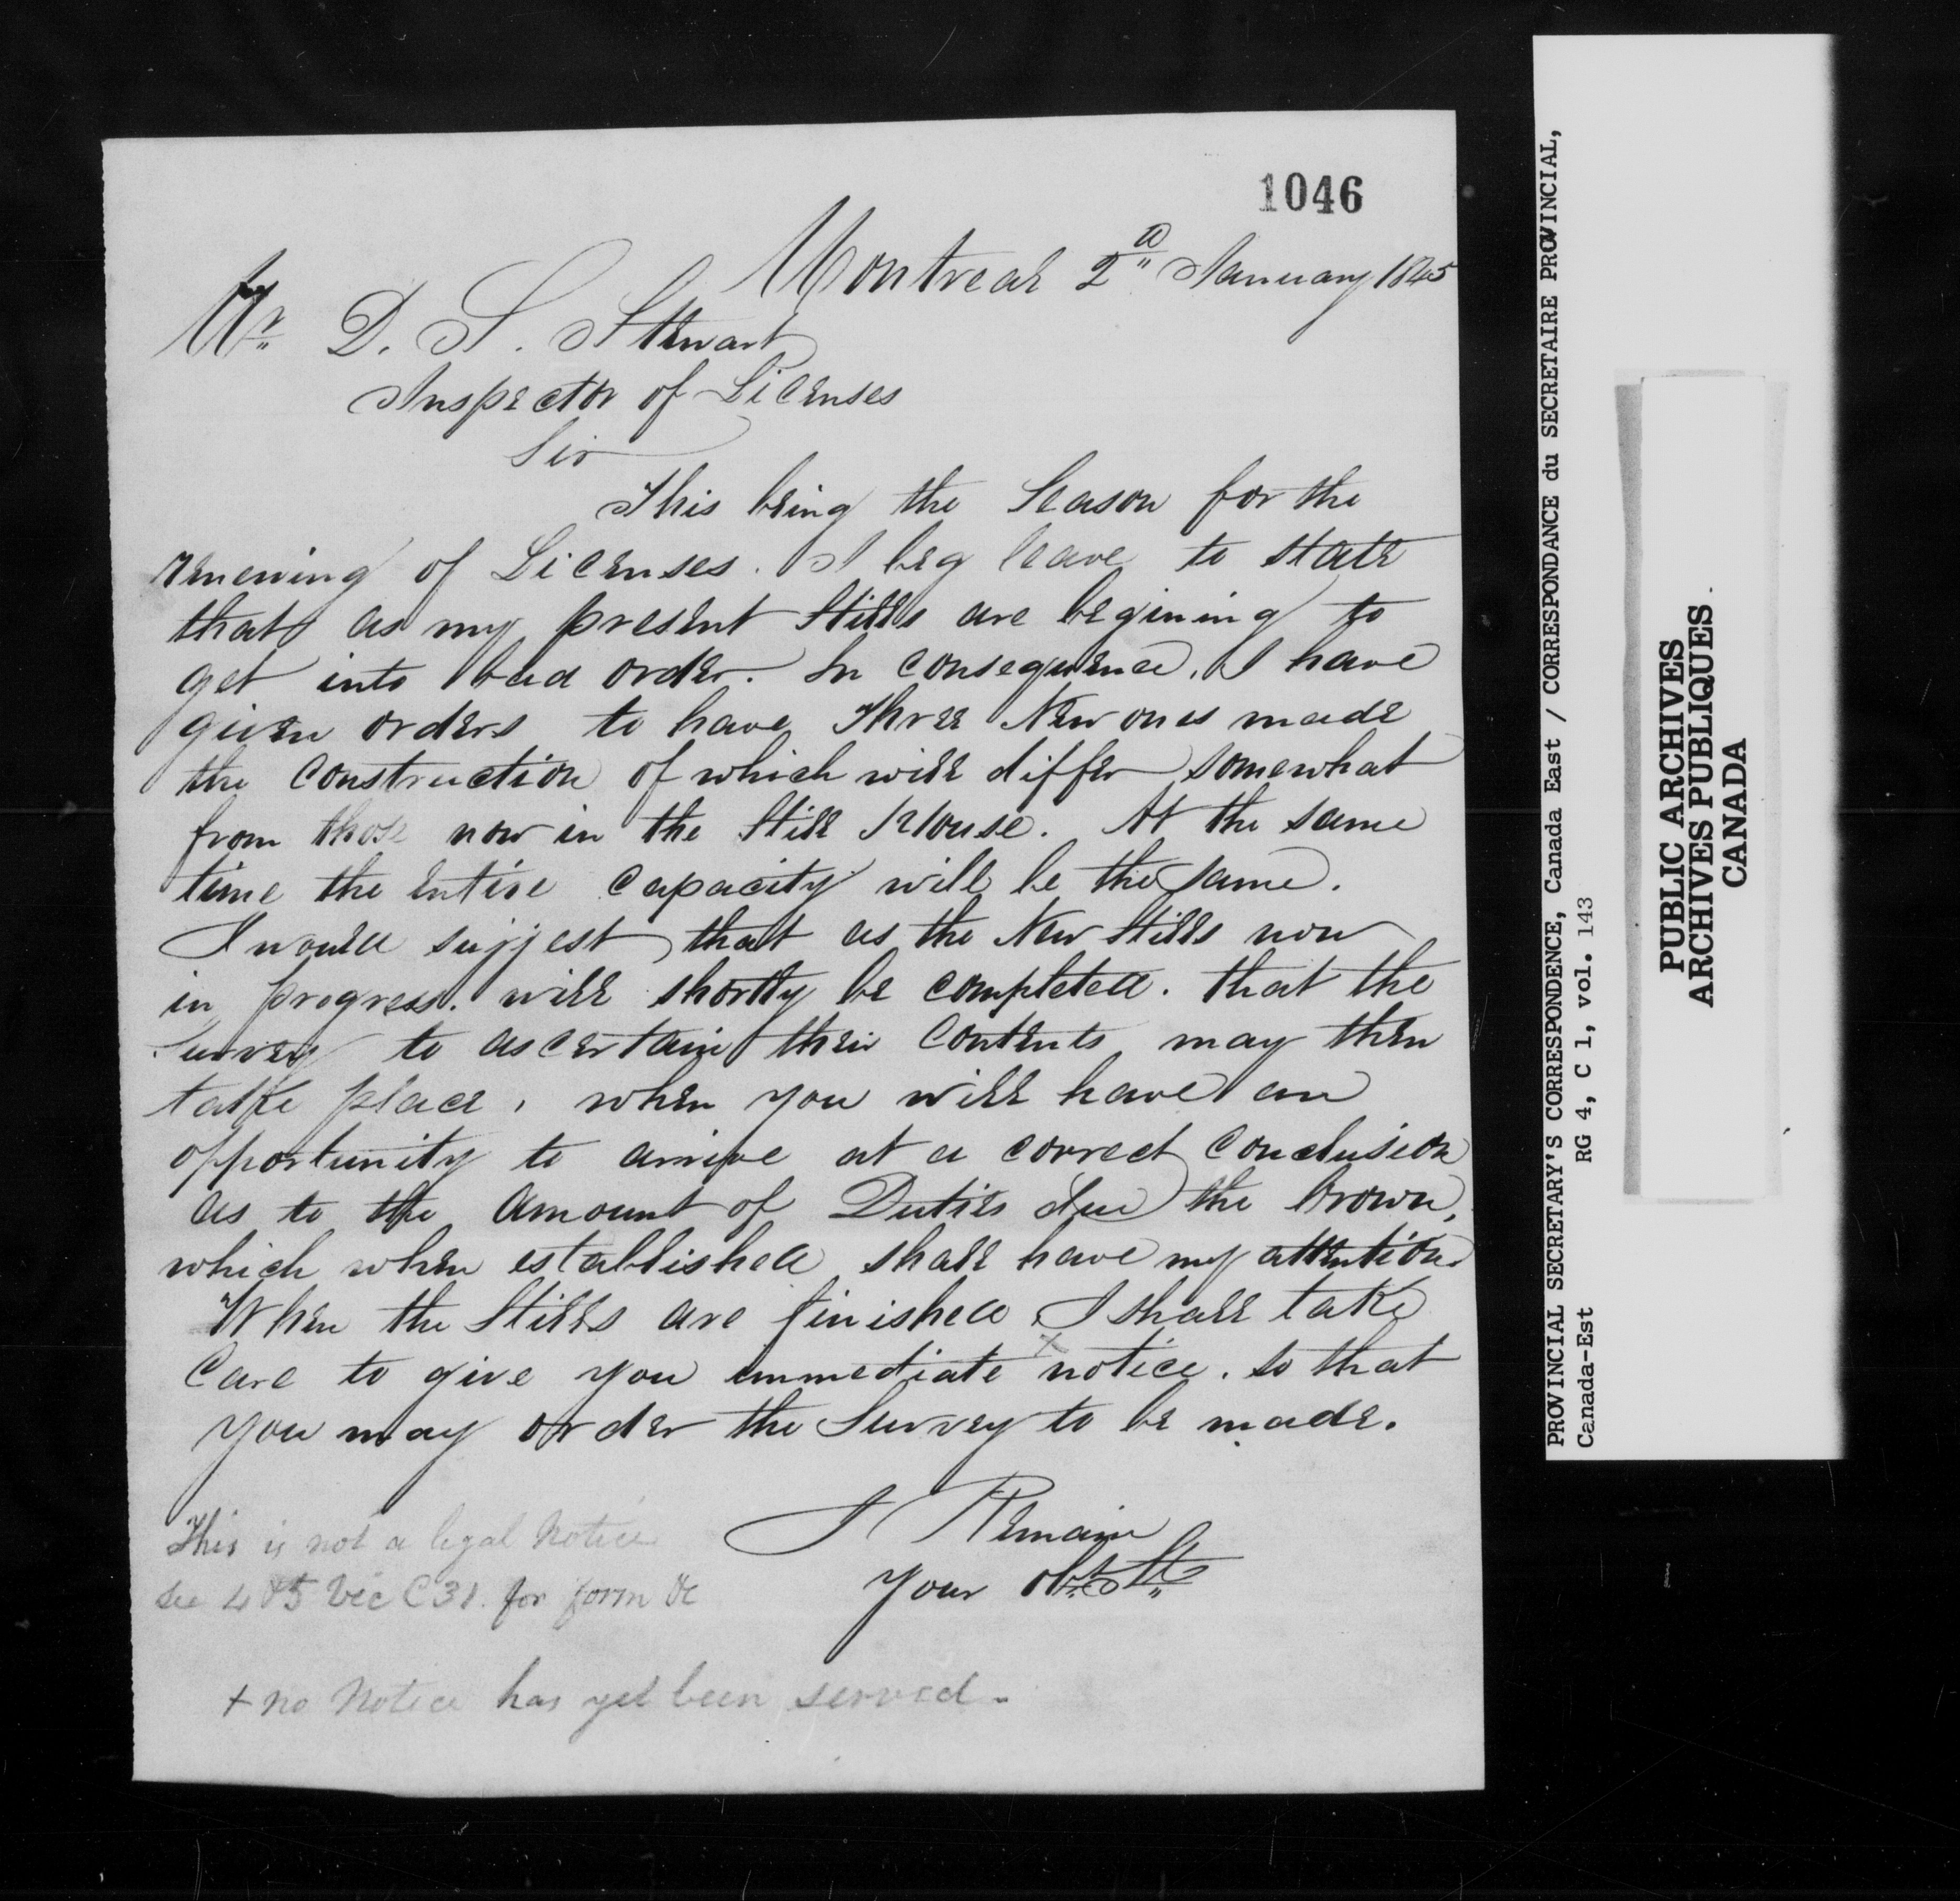 1046
Montreal 2d January 1845
Mr D. S. Stewart
Inspector of Licenses
Sir
This being the Season for the
renewing of Licenses. I beg leave to state
that as my present Stills are begining to
get into bad order. In consequence, I have
given orders to have Three New ones made
the Construction of which will differ somewhat
from those now in the Still House. At the same
time the entire capacity will be the same.
I would suggest that as the New Stills now
in progress. will shortly be completed. that the
Survey to ascertain their Contents may then
take place, when you will have an
opportunity to arrive at a correct Conclusion
as to the amount of Duties due the Crown,
which when established shall have my attention.
When the Stills are finished I shall take
Care to give you immediate x notice. so that
you may order the Survey to be made.
I Remain
Your Obt St
This is not a legal Notice
see 4 & 5 Vic C 31. for form &c
+ no Notice has yet been served.
PROVINCIAL SECRETARY'S CORRESPONDENCE, Canada East / CORRESPONDANCE du SECRETAIRE PROVINCIAL,
Canada-Est RG 4, C 1, vol. 143
PUBLIC ARCHIVES
ARCHIVES PUBLIQUES
CANADA